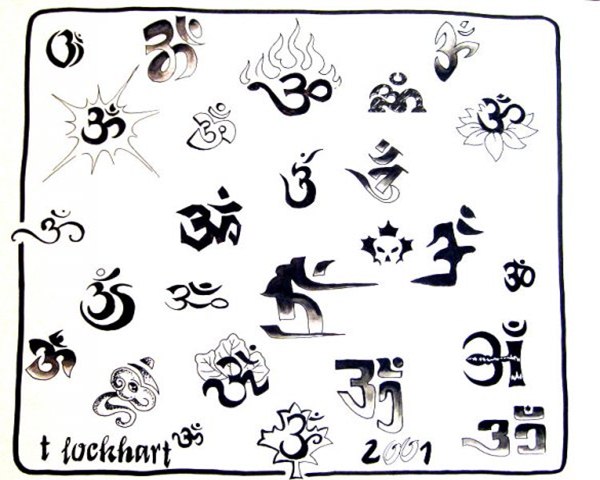 ॐ ॐ ॐ ॐ ॐ
ॐ ॐ ॐ
ॐ ॐ
ॐ ॐ ॐ
ॐ ॐ ॐ ॐ
ॐ ॐ ॐ ॐ ॐ
ॐ ॐ
t lockhart ॐ 2001